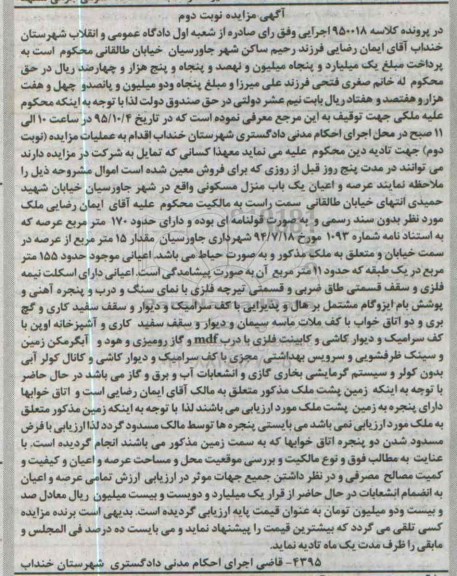 آگهی مزایده نوبت دوم
در پرونده کلاسه ۹۵۰۰۱۸ اجرایی وفق رای صادره از شعبه اول دادگاه عمومی و انقلاب شهرستان
خنداب آقای ایمان رضایی فرزند رحیم ساکن شهر جاورسیان خیابان طالقانی محکوم است به
پرداخت مبلغ یک میلیارد و پنجاه میلیون و نهصد و پنجاه و پنج هزار و چهارصد ریال در حق
محکوم له خانم صغری فتحی فرزند علی میرزا و مبلغ پنجاه ودو میلیون و پانصدو چهل و هفت
هزار و هفتصد و هفتاد ریال بابت نیم عشر دولتی در حق صندوق دولت لذا با توجه به اینکه محکوم
علیه ملکی جهت توقیف به این مرجع معرفی نموده است که در تاریخ ۹۵/۱۰/۴ در ساعت ۱۰ الی
۱۱ صبح در محل اجرای احکام مدنی دادگستری شهرستان خنداب اقدام به عملیات مزایده (نوبت
دوم) جهت تادیه دین محکوم علیه می نماید معهذا کسانی که تمایل به شرکت در مزایده دارند
می توانند در مدت پنج روز قبل از روزی که برای فروش معین شده است اموال مشروحه ذیل را
ملاحظه نمایند عرصه و اعیان یک باب منزل مسکونی واقع در شهر جاورسیان خیابان شهید
حمیدی انتهای خیابان طالقانی سمت راست به مالکیت محکوم علیه آقای ایمان رضایی ملک
مورد نظر بدون سند رسمی و به صورت قولنامه ای بوده و دارای حدود ۱۷۰ متر مربع عرصه که
به استناد نامه شماره ۱۰۹۳ مورخ ۹۴/۷/۱۸ شهرداری جاورسیان مقدار ۱۵ متر مربع از عرصه در
سمت خیابان و متعلق به ملک مذکور و به صورت حیاط می باشد. اعیانی موجود حدود ۱۵۵ متر
مربع در یک طبقه که حدود ۱۱ متر مربع آن به صورت پیشامدگی است. اعیانی دارای اسکلت نیمه
فلزی و سقف قسمتی طاق ضربی و قسمتی تیرچه فلزی با نمای سنگ و درب و پنجره آهنی و
پوشش بام ایزوگام مشتمل بر هال و پذیرایی با کف سرامیک و دیوار و سقف سفید کاری و گچ
بری و دو اتاق خواب با کف ملات ماسه سیمان و دیوار و سقف سفید کاری و آشپزخانه اوپن با
کف سرامیک و دیوار کاشی و کابینت فلزی با درب mdf و گاز رومیزی و هود و آبگرمکن زمین
و سینک ظرفشویی و سرویس بهداشتی مجزی با کف سرامیک و دیوار کاشی و کانال کولر آبی
بدون کولر و سیستم گرمایشی بخاری گازی و انشعابات آب و برق و گاز می باشد در حال حاضر
با توجه به اینکه زمین پشت ملک مذکور متعلق به مالک آقای ایمان رضایی است و اتاق خوابها
دارای پنجره به زمین پشت ملک مورد ارزیابی می باشند لذا با توجه به اینکه زمین مذکور متعلق
به ملک مورد ارزیابی نمی باشد می بایستی پنجره ها توسط مالک مسدود گردد لذا ارزیابی با فرض
مسدود شدن دو پنجره اتاق خوابها که به سمت زمین مذکور می باشند انجام گردیده است. با
عنایت به مطالب فوق و نوع مالکیت و بررسی موقعیت محل و مساحت عرصه و اعیان و کیفیت و
کمیت مصالح مصرفی و در نظر داشتن جمیع جهات موثر در ارزیابی ارزش تمامی عرصه و اعیان
به انضمام انشعابات در حال حاضر از قرار یک میلیارد و دویست و بیست میلیون ریال معادل صد
و بیست ودو میلیون تومان به عنوان قیمت پایه ارزیابی گردیده است. بدیهی است برنده مزایده
کسی تلقی می گردد که بیشترین قیمت را پیشنهاد نماید و می بایست ده درصد فی المجلس و
مابقی را ظرف مدت یک ماه تادیه نماید.
۴۳۹۵- قاضی اجرای احکام مدنی دادگستری شهرستان خنداب